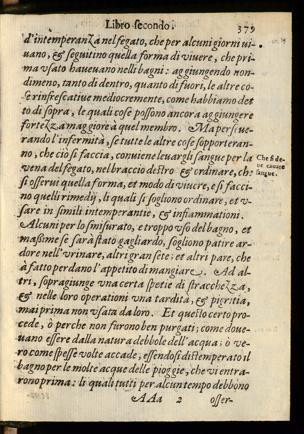 Libro secondo. 379
d'intemperanza nel fegato, che per alcuni giorni vi-
uano, & seguitino quella forma di viuere, che pri-
ma vsato haueuano nelli bagni: aggiungendo non-
dimeno, tanto di dentro, quanto di fuori, le altre co-
se rinfrescatiue mediocremente, come habbiamo det
to di sopra, le quali cose possono ancora aggiungere
fortezza maggiore à quel membro. Ma perseue-
rando l'infermità, se tutte le altre cose sopporteran-
no, che ciò si faccia, conuiene leuargli sangue per la
vena del fegato, nel braccio destro & ordinare, che
si osserui quella forma, et modo di viuere, e si facci-
no quelli rimedij, li quali si sogliono ordinare, et v-
sare in simili intemperantie, & infiammationi.
Alcuni per lo smisurato, et troppo vso del bagno, et
maßime se sarà stato gagliardo, sogliono patire ar-
dore nell'vrinare, altri gran sete; et altri pare, che
à fatto perdano l'appetito di mangiare. Ad al-
tri, sopragiunge vna certa spetie di stracchezza,
& nelle loro operationi vna tardità, & pigritia,
mai prima non vsata da loro. Et questo certo pro-
cede, ò perche non furono ben purgati; come doue-
uano essere dalla natura debbole dell'acqua; ò ve-
ro come spesse volte accade, essendosi distemperato il
bagno per le molte acque delle pioggie, che vi entra-
rono prima: li quali tutti per alcun tempo debbono
AAa 2 osser-
Che si de-
ue cauare
sangue.